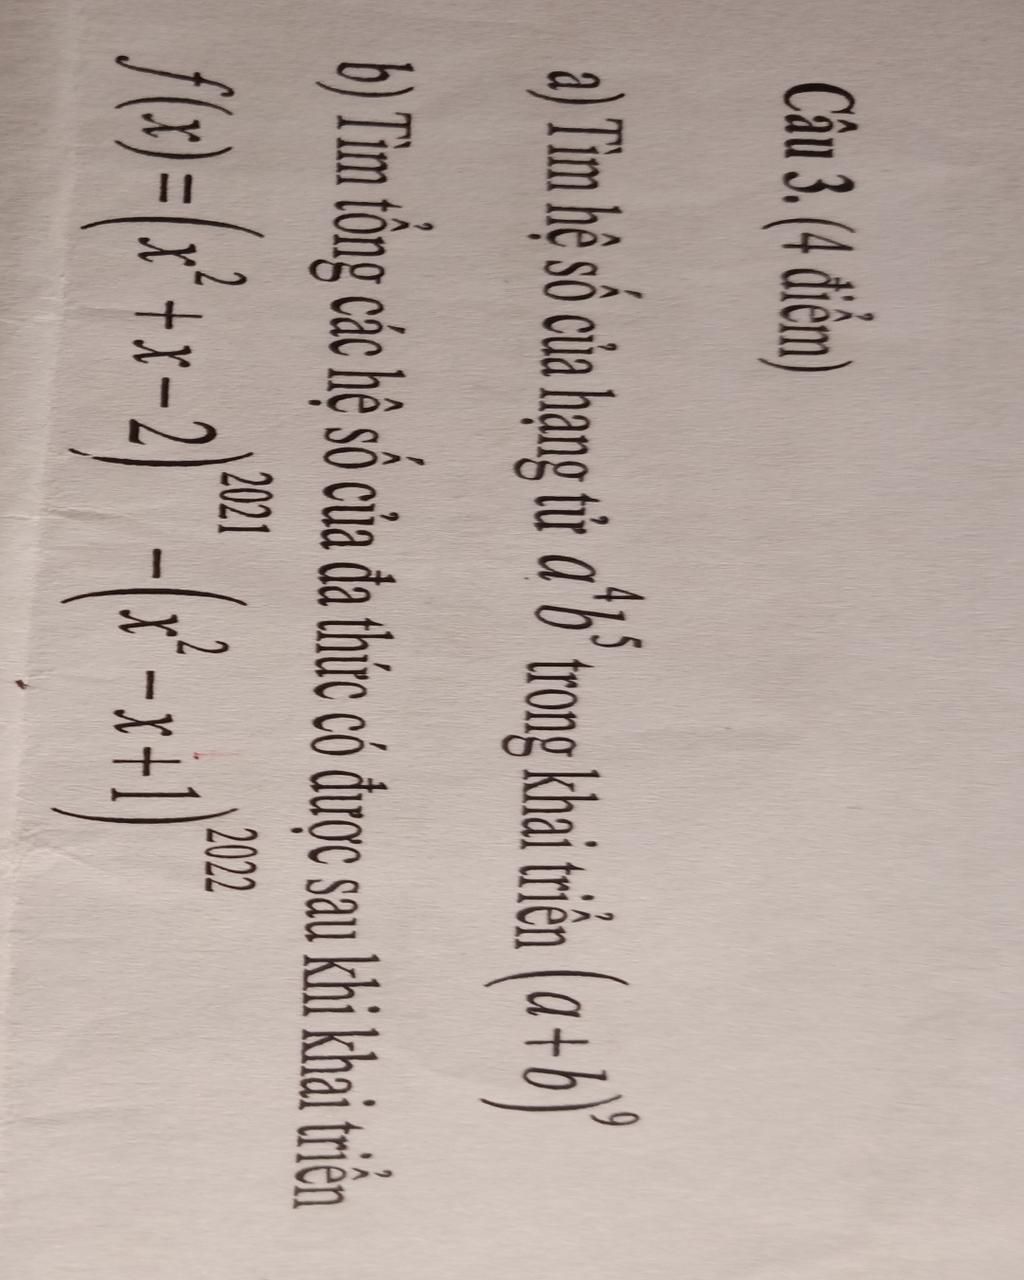 Câu 3. (4 điểm)
a) Tìm hệ số của hạng tử a⁴b⁵ trong khai triển (a+b)⁹
b) Tìm tổng các hệ số của đa thức có được sau khi khai triển
f(x) = (x² + x − 2)²⁰²¹ − (x² − x + 1)²⁰²²